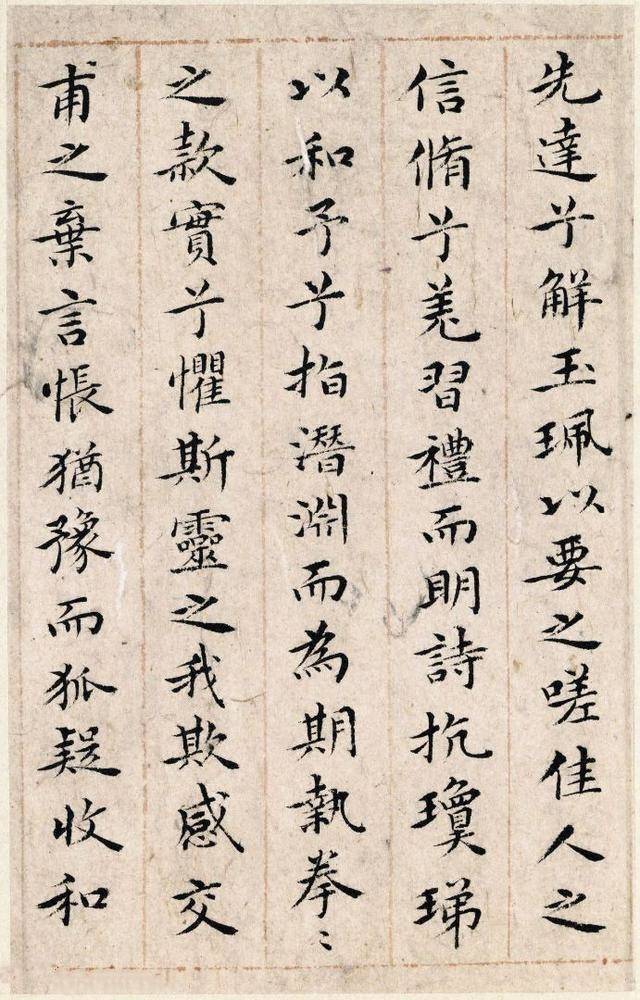 先達兮解玉珮以要之嗟佳人之
信脩兮羌習禮而明詩抗瓊珶
以和予兮指潛淵而為期執拳〻
之款實兮懼斯靈之我欺感交
甫之棄言悵猶豫而狐疑收和